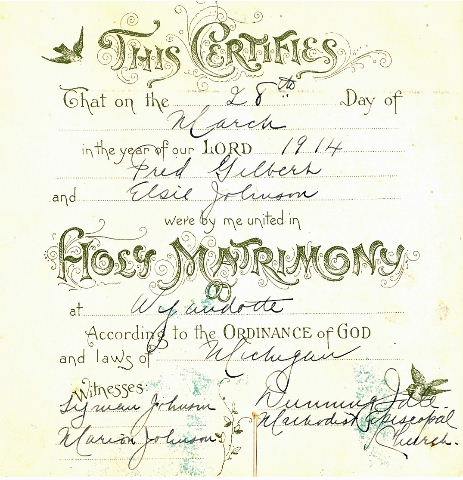 THIS CERTIFIES
That on the 28th Day of
March
in the year of our LORD 1914
Fred Gilbert
and Elsie Johnson
were by me united in
HOLY MATRIMONY
at Wyandotte
According to the ORDINANCE of GOD
and laws of Michigan
Witnesses:
Lyman Johnson
Marion Johnson
Dunning Idle
Methodist Episcopal
Church.